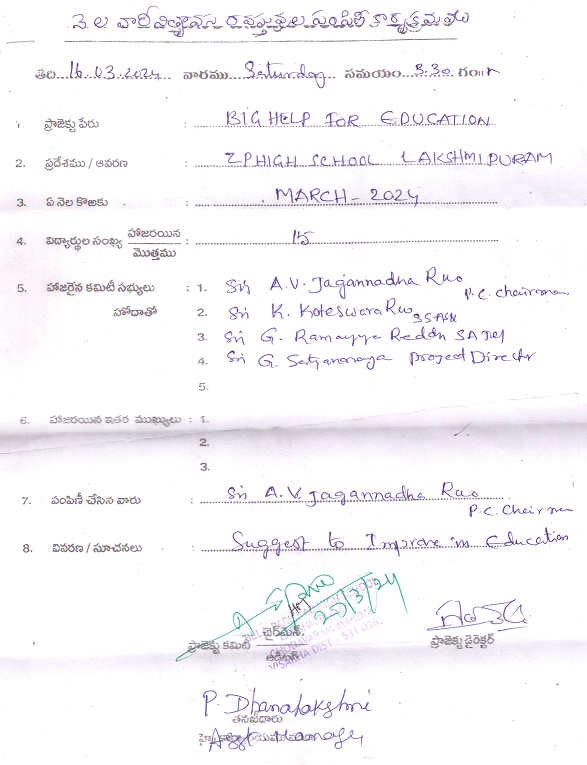 నెలవారీ విద్యోపకరణ వస్తువుల పంపిణీ కార్యక్రమము
తేది...16.03.2024 వారము Saturday సమయం 3.30 గం॥
1. ప్రాజెక్టు పేరు : BIG HELP FOR EDUCATION
2. ప్రదేశము / ఆవరణ : ZPHIGH SCHOOL LAKSHMIPURAM
3. ఏ నెల కొఱకు : MARCH - 2024
4. విద్యార్థుల సంఖ్య హాజరయిన / మొత్తము : 15
5. హాజరైన కమిటీ సభ్యులు : 1. Sri A.V. Jagannadha Rao P.C. Chairman
హోదాతో 2. Sri K. Koteswara Rao
3. Sri G. Ramayya Reddy SA
4. Sri G. Satyanaraya Project Director
5.
6. హాజరయిన ఇతర ముఖ్యులు : 1.
2.
3.
7. పంపిణీ చేసిన వారు : Sri A.V. Jagannadha Rao
P.C. Chairman
8. వివరణ / సూచనలు : Suggest to Improve in Education
ఛైర్మెన్,
ప్రాజెక్టు కమిటీ
ప్రాజెక్టు డైరెక్టర్
VISAKHA DIST - 531 036.
P. Dhanalakshmi